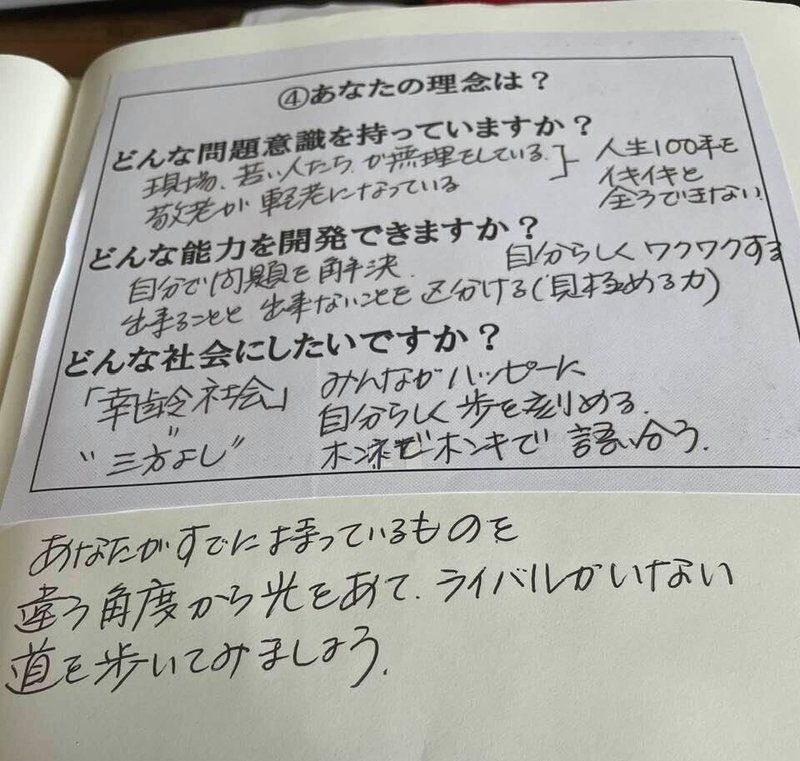 ④あなたの理念は？
どんな問題意識を持っていますか？
現場、若い人たちが無理をしている。
敬老が軽老になっている
人生100年を
イキイキと
全うできない
どんな能力を開発できますか？
自分らしくワクワクする
自分で問題を解決
出来ることと出来ないことを区分ける(見極める力)
どんな社会にしたいですか？
「幸齢社会」
みんながハッピーに
自分らしく歩を刻める。
〃
"三方よし"
ホンネでホンキで語り合う。
あなたがすでに持っているものを
違う角度から光をあて、ライバルがいない
道を歩いてみましょう。